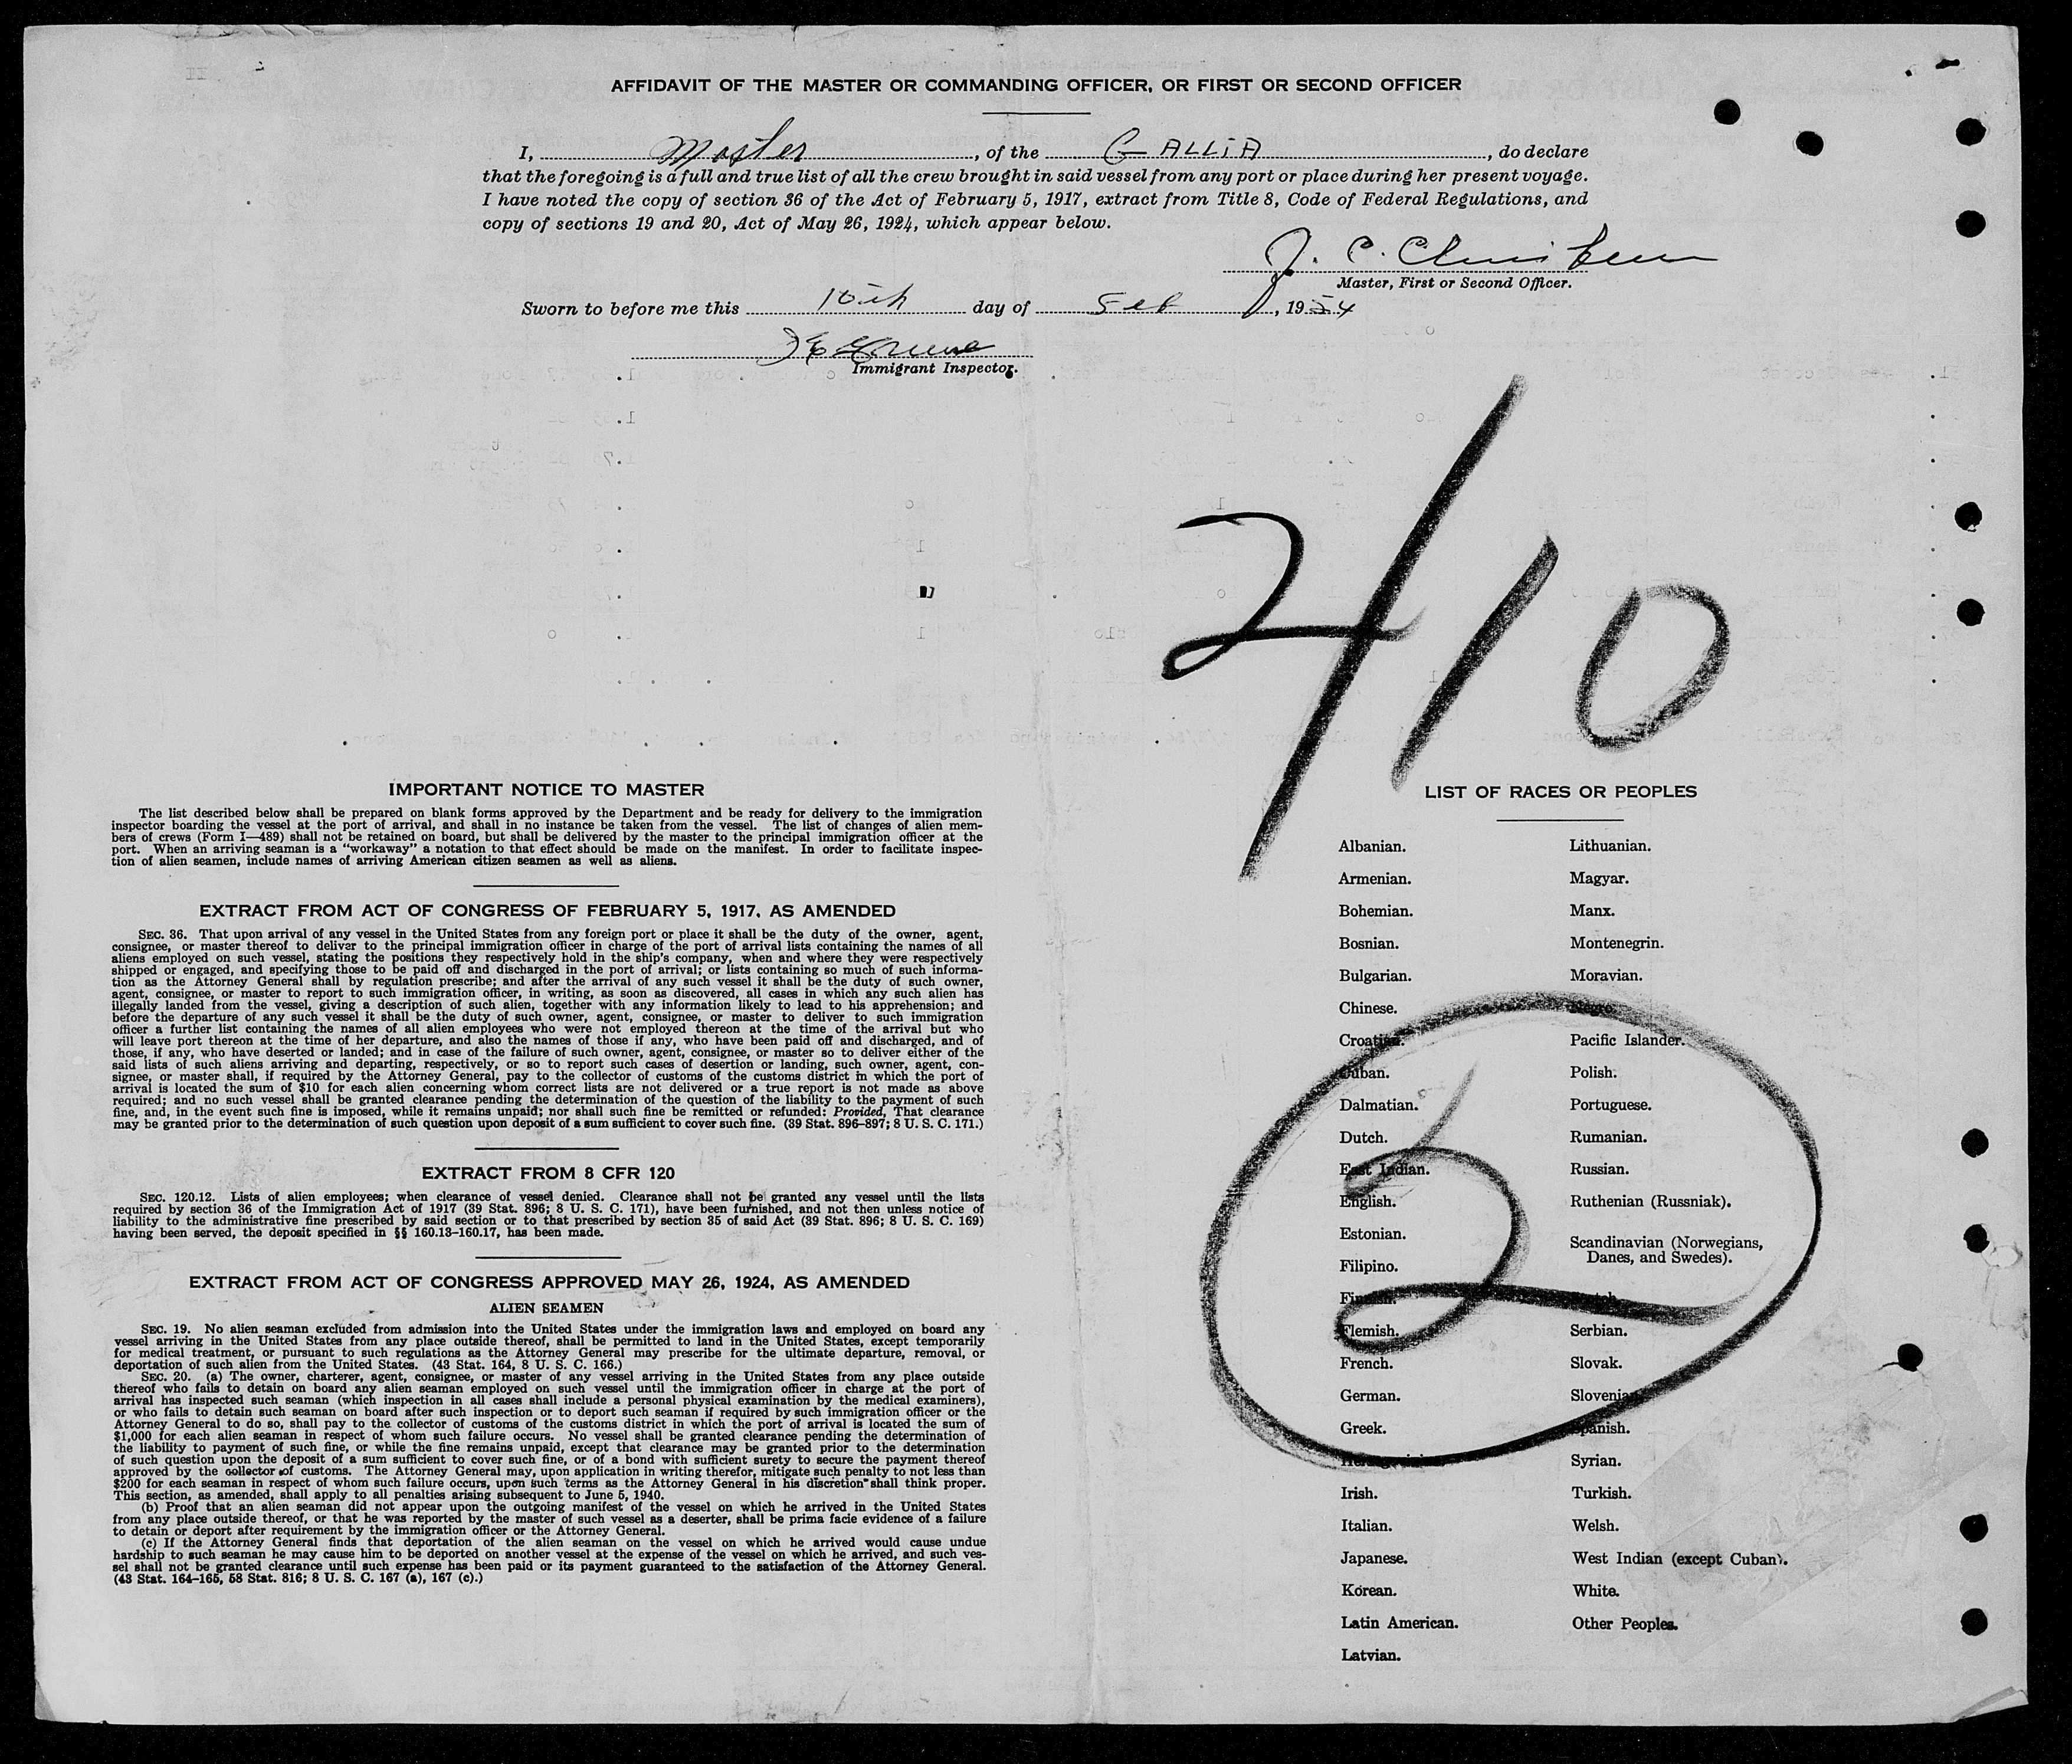 AFFIDAVIT OF THE MASTER OR COMMANDING OFFICER, OR FIRST OR SECOND OFFICER
I, Master, of the GALLIA, do declare
that the foregoing is a full and true list of all the crew brought in said vessel from any port or place during her present voyage.
I have noted the copy of section 36 of the Act of February 5, 1917, extract from Title 8, Code of Federal Regulations, and
copy of sections 19 and 20, Act of May 26, 1924, which appear below.
J. C. Christensen
Master, First or Second Officer.
Sworn to before me this 10th day of Feb, 1954
Immigrant Inspector.
410
IMPORTANT NOTICE TO MASTER
The list described below shall be prepared on blank forms approved by the Department and be ready for delivery to the immigration
inspector boarding the vessel at the port of arrival, and shall in no instance be taken from the vessel. The list of changes of alien mem-
bers of crews (Form I—489) shall not be retained on board, but shall be delivered by the master to the principal immigration officer at the
port. When an arriving seaman is a "workaway" a notation to that effect should be made on the manifest. In order to facilitate inspec-
tion of alien seamen, include names of arriving American citizen seamen as well as aliens.
EXTRACT FROM ACT OF CONGRESS OF FEBRUARY 5, 1917, AS AMENDED
SEC. 36. That upon arrival of any vessel in the United States from any foreign port or place it shall be the duty of the owner, agent,
consignee, or master thereof to deliver to the principal immigration officer in charge of the port of arrival lists containing the names of all
aliens employed on such vessel, stating the positions they respectively hold in the ship's company, when and where they were respectively
shipped or engaged, and specifying those to be paid off and discharged in the port of arrival; or lists containing so much of such informa-
tion as the Attorney General shall by regulation prescribe; and after the arrival of any such vessel it shall be the duty of such owner,
agent, consignee, or master to report to such immigration officer, in writing, as soon as discovered, all cases in which any such alien has
illegally landed from the vessel, giving a description of such alien, together with any information likely to lead to his apprehension; and
before the departure of any such vessel it shall be the duty of such owner, agent, consignee, or master to deliver to such immigration
officer a further list containing the names of all alien employees who were not employed thereon at the time of the arrival but who
will leave port thereon at the time of her departure, and also the names of those if any, who have been paid off and discharged, and of
those, if any, who have deserted or landed; and in case of the failure of such owner, agent, consignee, or master so to deliver either of the
said lists of such aliens arriving and departing, respectively, or so to report such cases of desertion or landing, such owner, agent, con-
signee, or master shall, if required by the Attorney General, pay to the collector of customs of the customs district in which the port of
arrival is located the sum of $10 for each alien concerning whom correct lists are not delivered or a true report is not made as above
required; and no such vessel shall be granted clearance pending the determination of the question of the liability to the payment of such
fine, and, in the event such fine is imposed, while it remains unpaid; nor shall such fine be remitted or refunded: Provided, That clearance
may be granted prior to the determination of such question upon deposit of a sum sufficient to cover such fine. (39 Stat. 896–897; 8 U. S. C. 171.)
EXTRACT FROM 8 CFR 120
SEC. 120.12. Lists of alien employees; when clearance of vessel denied. Clearance shall not be granted any vessel until the lists
required by section 36 of the Immigration Act of 1917 (39 Stat. 896; 8 U. S. C. 171), have been furnished, and not then unless notice of
liability to the administrative fine prescribed by said section or to that prescribed by section 35 of said Act (39 Stat. 896; 8 U. S. C. 169)
having been served, the deposit specified in §§ 160.13–160.17, has been made.
EXTRACT FROM ACT OF CONGRESS APPROVED MAY 26, 1924, AS AMENDED
ALIEN SEAMEN
SEC. 19. No alien seaman excluded from admission into the United States under the immigration laws and employed on board any
vessel arriving in the United States from any place outside thereof, shall be permitted to land in the United States, except temporarily
for medical treatment, or pursuant to such regulations as the Attorney General may prescribe for the ultimate departure, removal, or
deportation of such alien from the United States. (43 Stat. 164, 8 U. S. C. 166.)
SEC. 20. (a) The owner, charterer, agent, consignee, or master of any vessel arriving in the United States from any place outside
thereof who fails to detain on board any alien seaman employed on such vessel until the immigration officer in charge at the port of
arrival has inspected such seaman (which inspection in all cases shall include a personal physical examination by the medical examiners),
or who fails to detain such seaman on board after such inspection or to deport such seaman if required by such immigration officer or the
Attorney General to do so, shall pay to the collector of customs of the customs district in which the port of arrival is located the sum of
$1,000 for each alien seaman in respect of whom such failure occurs. No vessel shall be granted clearance pending the determination of
the liability to payment of such fine, or while the fine remains unpaid, except that clearance may be granted prior to the determination
of such question upon the deposit of a sum sufficient to cover such fine, or of a bond with sufficient surety to secure the payment thereof
approved by the collector of customs. The Attorney General may, upon application in writing therefor, mitigate such penalty to not less than
$200 for each seaman in respect of whom such failure occurs, upon such terms as the Attorney General in his discretion shall think proper.
This section, as amended, shall apply to all penalties arising subsequent to June 5, 1940.
(b) Proof that an alien seaman did not appear upon the outgoing manifest of the vessel on which he arrived in the United States
from any place outside thereof, or that he was reported by the master of such vessel as a deserter, shall be prima facie evidence of a failure
to detain or deport after requirement by the immigration officer or the Attorney General.
(c) If the Attorney General finds that deportation of the alien seaman on the vessel on which he arrived would cause undue
hardship to such seaman he may cause him to be deported on another vessel at the expense of the vessel on which he arrived, and such ves-
sel shall not be granted clearance until such expense has been paid or its payment guaranteed to the satisfaction of the Attorney General.
(43 Stat. 164–165, 58 Stat. 816; 8 U. S. C. 167 (a), 167 (c).)
LIST OF RACES OR PEOPLES
Albanian.
Armenian.
Bohemian.
Bosnian.
Bulgarian.
Chinese.
Croatian.
Cuban.
Dalmatian.
Dutch.
East Indian.
English.
Estonian.
Filipino.
Finnish.
Flemish.
French.
German.
Greek.
Herzegovinian.
Irish.
Italian.
Japanese.
Korean.
Latin American.
Latvian.
Lithuanian.
Magyar.
Manx.
Montenegrin.
Moravian.
Negro.
Pacific Islander.
Polish.
Portuguese.
Rumanian.
Russian.
Ruthenian (Russniak).
Scandinavian (Norwegians,
Danes, and Swedes).
Scotch.
Serbian.
Slovak.
Slovenian.
Spanish.
Syrian.
Turkish.
Welsh.
West Indian (except Cuban).
White.
Other Peoples.
2